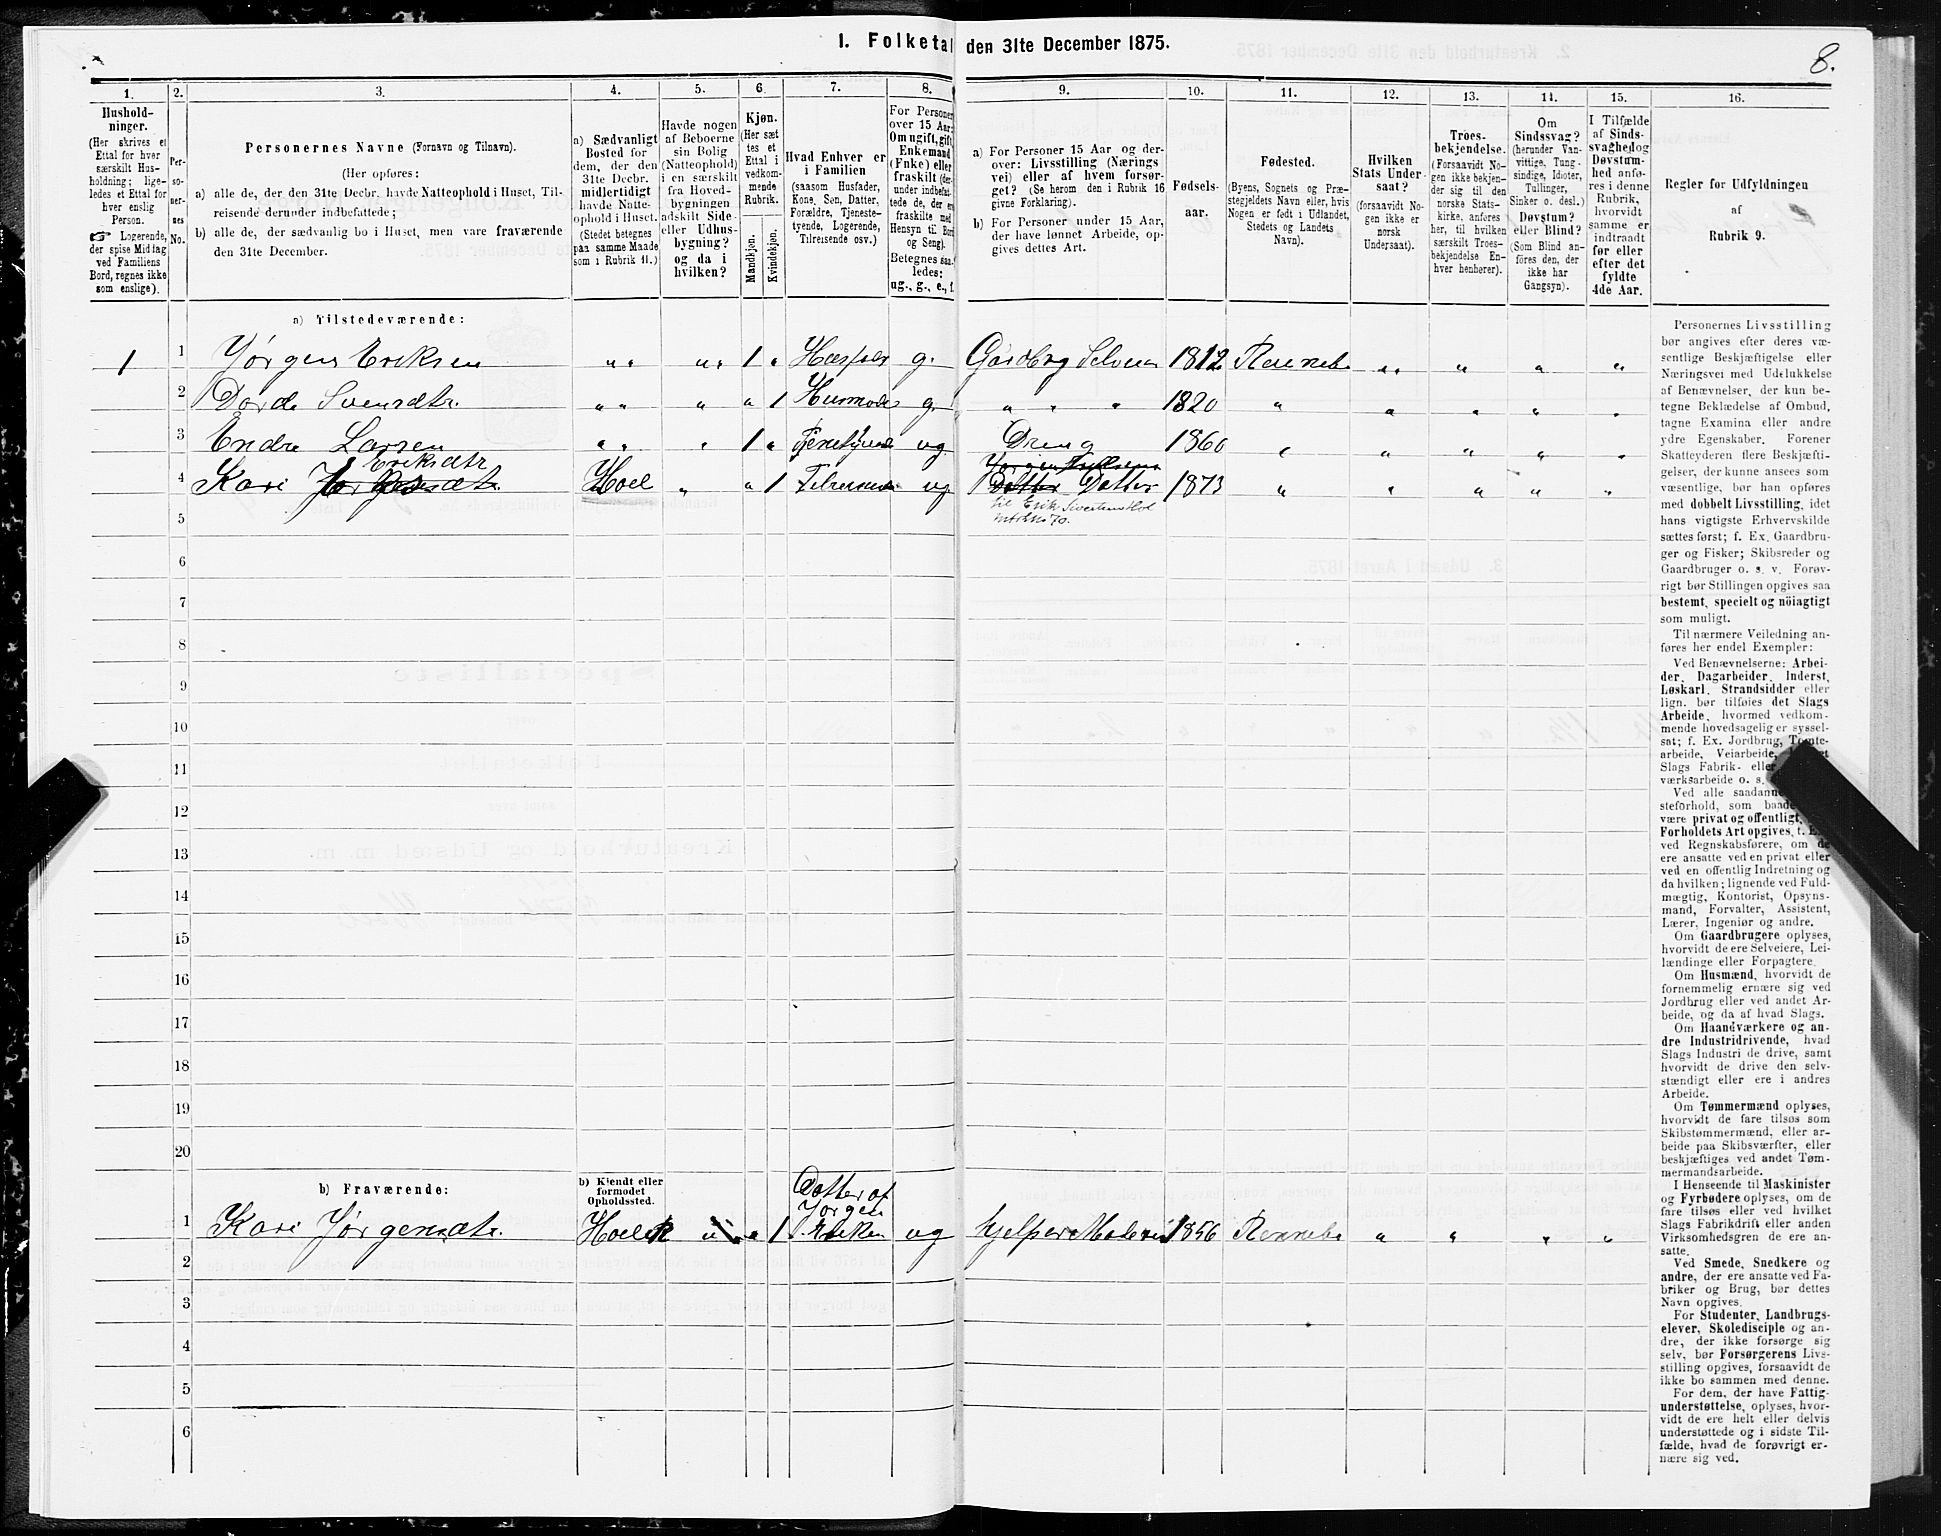 1. Folketal den 31te December 1875.
8.
1. 2. 3. 4. 5. 6. 7. 8. 9. 10. 11. 12. 13. 14. 15. 16.
Hushold-
ninger.
(Her skrives et
Ettal for hver
særskilt Hus-
holdning; lige-
ledes et Ettal for
hver enslig
Person.
☞ Logerende,
der spise Middag
ved Familiens
Bord, regnes ikke
som enslige).
Per-
so-
ner-
nes
No.
Personernes Navne (Fornavn og Tilnavn).
(Her opføres:
a) alle de, der den 31te Decbr. havde Natteophold i Huset, Til-
reisende derunder indbefattede;
b) alle de, der sædvanlig bo i Huset, men vare fraværende
den 31te December.
a) Sædvanligt
Bosted for
dem, der den
31te Decbr.
midlertidigt
havde Natte-
ophold i Huset.
(Stedet betegnes
paa samme Maade
som i Rubrik 11.)
Havde nogen
af Beboerne
sin Bolig
(Natteophold)
i en særskilt
fra Hoved-
bygningen
adskilt Side-
eller Udhus-
bygning?
og da i
hvilken?
Kjøn.
(Her sæt
tes et
Ettal i
vedkom-
mende
Rubrik.
Mandkjøn.
Kvindekjøn.
Hvad Enhver er
i Familien
(saasom Husfader,
Kone, Søn, Datter,
Forældre, Tjeneste-
tyende, Logerende,
Tilreisende osv.)
For Personer
over 15 Aar:
Om ugift, gift,
Enkemand
(Enke) eller
fraskilt (der-
under indbefat-
tede de, der ere
fraskilte med
Hensyn til Bord
og Seng).
Betegnes saa-
ledes:
ug., g., e., f.
a) For Personer 15 Aar og der-
over: Livsstilling (Nærings
vei) eller af hvem forsør-
get? (Se herom den i Rubrik 16
givne Forklaring).
b) For Personer under 15 Aar,
der have lønnet Arbeide, op-
gives dettes Art.
Fødsels-
aar.
Fødested.
(Byens, Sognets og Præ-
stegjeldets Navn eller, hvis
Nogen er født i Udlandet,
Stedets og Landets
Navn).
Hvilken
Stats Under-
saat?
(forsaavidt No-
gen ikke er
norsk
Undersaat).
Troes-
bekjendelse.
(Forsaavidt No-
gen ikke bekjen-
der sig til den
norske Stats-
kirke, anføres
her, til hvilken
særskilt Troes-
bekjendelse En-
hver henhører).
Om
Sindssvag?
(herunder Van-
vittige, Tung-
sindige, Idioter,
Tullinger,
Sinker o. desl.)
Døvstum?
eller Blind?
(Som Blind an-
føres den, der
ikke har
Gangsyn).
I Tilfælde
af Sinds-
svaghed og
Døvstum-
hed anfø-
res i denne
Rubrik,
hvorvidt
samme er
indtraadt
før eller
efter det
fyldte
4de Aar.
Regler for Udfyldningen
af
Rubrik 9.
a) Tilstedeværende:
1 1 Jørgen Eriksen " " " " 1 " g. 1812 Rennebo " " " " "
2 " " " " 1 g. " " " 1820 " " " " "
3 Endre Larsen " " " 1 " ug Dreng 1860 " " " " "
Eriksdtr
4 Kari Jørgensdtr. Hoel " " 1 ug Datter Datter 1873 " " " " "
til Erik
5
6
7
8
9
10
11
12
13
14
15
16
17
18
19
20
b) Fraværende:
b) Kjendt eller
formodet
Opholdssted.
Datter af
Jørgen
1 Kari Jørgensdtr. " 1 ug 1856 Rennebo " " " "
2
3
4
5
6
Personernes Livsstilling
bør angives efter deres væ-
sentlige Beskjæftigelse eller
Næringsvei med Udelukkelse
af Benævnelser, der kun be-
tegne Beklædelse af Ombud,
tagne Examina eller andre
ydre Egenskaber. Forener
Skatteyderen flere Beskjæfti-
gelser, der kunne ansees som
væsentlige, bør han opføres
med dobbelt Livsstilling, idet
hans vigtigste Erhvervskilde
sættes først; f. Ex. Gaardbru-
ger og Fisker; Skibsreder og
Gaardbruger o. s. v. Forøv-
rigt bør Stillingen opgives saa
bestemt, specielt og nöiagtigt
som muligt.
Til nærmere Veiledning an-
føres her endel Exempler:
Ved Benævnelserne: Arbei-
der, Dagarbeider, Inderst,
Løskarl, Strandsidder eller
lign. bør tilføies det Slags
Arbeide, hvormed vedkom-
mende hovedsagelig er syssel-
sat; f. Ex. Jordbrug, Tomte-
arbeide, Veiarbeide,
Slags Fabrik- eller
værksarbeide o. s.
Ved alle saadanne
steforhold, som baade
være privat og offentligt,
Forholdets Art opgives, t. Ex.
ved Regnskabsførere, om de
ere ansatte ved en privat eller
ved en offentlig Indretning og
da hvilken; lignende ved Fuld-
mægtig, Kontorist, Opsyns-
mand, Forvalter, Assistent,
Lærer, Ingeniør og andre.
Om Gaardbrugere oplyses,
hvorvidt de ere Selveiere, Lei-
lændinge eller Forpagtere.
Om Husmænd, hvorvidt de
fornemmelig ernære sig ved
Jordbrug eller ved andet Ar-
beide, og da af hvad Slags.
Om Haandværkere og an-
dre Industridrivende, hvad
Slags Industri de drive, samt
hvorvidt de drive den selv-
stændigt eller ere i andres
Arbeide.
Om Tømmermænd oplyses,
hvorvidt de fare tilsøs som
Skibstømmermænd, eller ar-
beide paa Skibsværfter, eller
beskjæftiges ved andet Tøm-
mermandsarbeide.
I Henseende til Maskinister
og Fyrbødere oplyses, om de
fare tilsøs eller ved hvilket
Slags Fabrikdrift eller anden
Virksomhedsgren de ere an-
satte.
Ved Smede, Snedkere og
andre, der ere ansatte ved Fa-
briker og Brug, bør dettes
Navn opgives.
For Studenter, Landbrugs-
elever, Skoledisciple og an-
dre, der ikke forsørge sig
selv, bør Forsørgerens Livs-
stilling opgives, forsaavidt de
ikke bo sammen med denne.
For dem, der have Fattig-
understøttelse, oplyses, hvor-
vidt de ere helt eller delvis
understøttede og i sidste Til-
fælde, hvad de forøvrigt er-
nære sig ved.